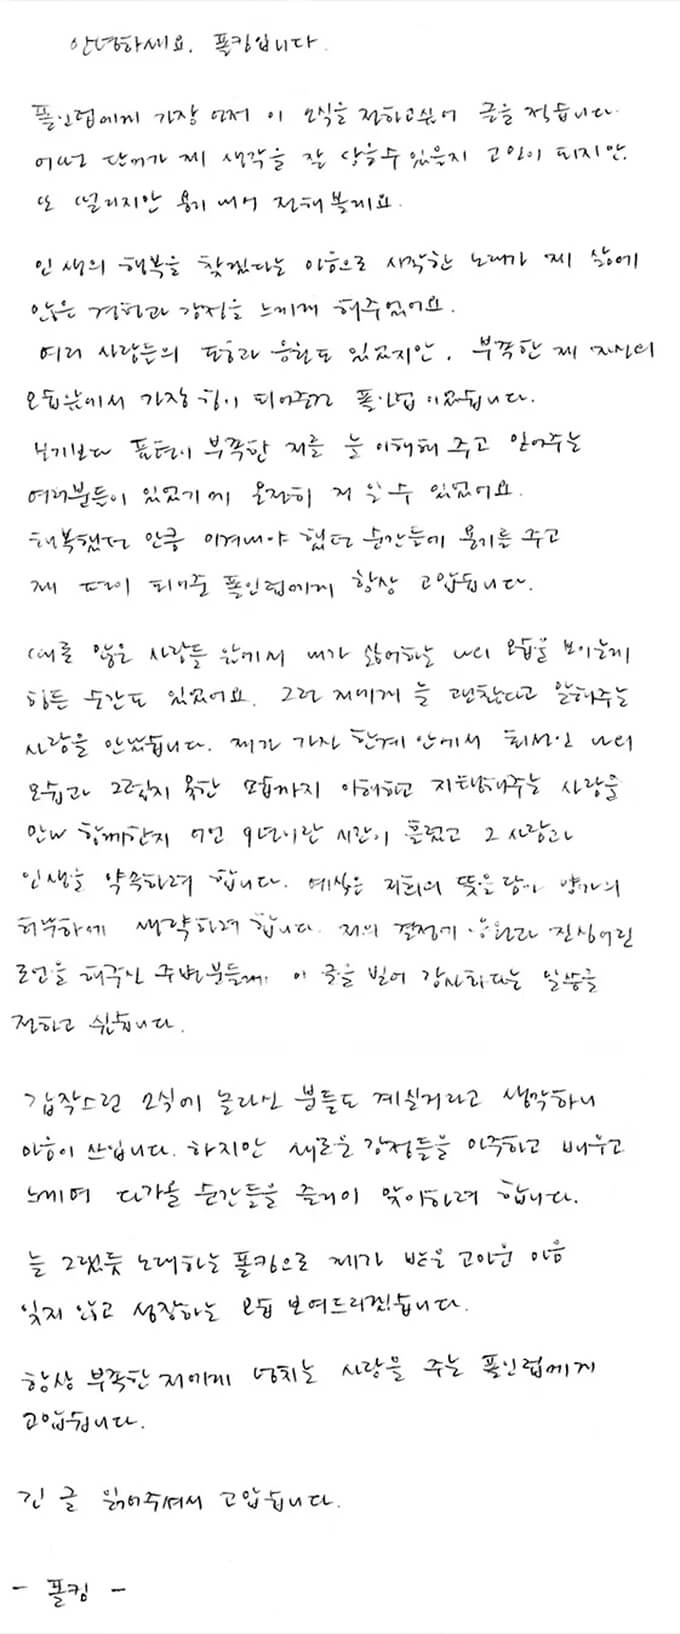 안녕하세요. 폴킴입니다.
폴인럽에게 가장 먼저 이 소식을 전하고싶어 글을 적습니다.
어떤 단어가 제 생각을 잘 담을수 있을지 고민이 되지만.
또 떨리지만 용기 내어 전해볼게요.
인생의 행복을 찾겠다는 마음으로 시작한 노래가 제 삶에
많은 경험과 감정을 느끼게 해주었어요.
여러 사람들의 도움과 응원도 있었지만, 부족한 제 자신의
모습뒤에서 가장 힘이 되어주건 폴인럽 이였습니다.
보기보다 표현이 부족한 저를 늘 이해해 주고 믿어주는
여러분들이 있었기에 온전히 저 일 수 있었어요.
행복했던 만큼 이겨내야 했던 순간들에 용기를 주고
제 편이 되어준 폴인럽에게 항상 고맙습니다.
때론 많은 사람들 앞에서 내가 싫어하는 나의 모습을 보이는게
힘든 순간도 있었어요. 그런 저에게 늘 괜찮다고 말해주는
사람을 만났습니다. 제가 가진 한계 안에서 최선인 나의
모습과 그렇지 못한 모습까지 이해하고 지탱해주는 사람을
만나 함께한지 어언 9년이란 시간이 흘렀고 그 사람과
인생을 약속하려 합니다. 예식은 저희의 뜻을 담아 양가의
허락하에 생략하려 합니다. 저의 결정에 응원과 진심어린
조언을 해주신 주변분들께 이 글을 빌어 감사하다는 말씀을
전하고 싶습니다.
갑작스런 소식에 놀라신 분들도 계실거라고 생각하니
마음이 쓰입니다. 하지만 새로운 감정들을 마주하고 배우고
느끼며 다가올 순간들을 즐거이 맞이하려 합니다.
늘 그랬듯 노래하는 폴킴으로 제가 받은 고마운 마음
잊지 않고 성장하는 모습 보여드리겠습니다.
항상 부족한 저에게 넘치는 사랑을 주는 폴인럽에게
고맙습니다.
긴 글 읽어주셔서 고맙습니다.
- 폴킴 -